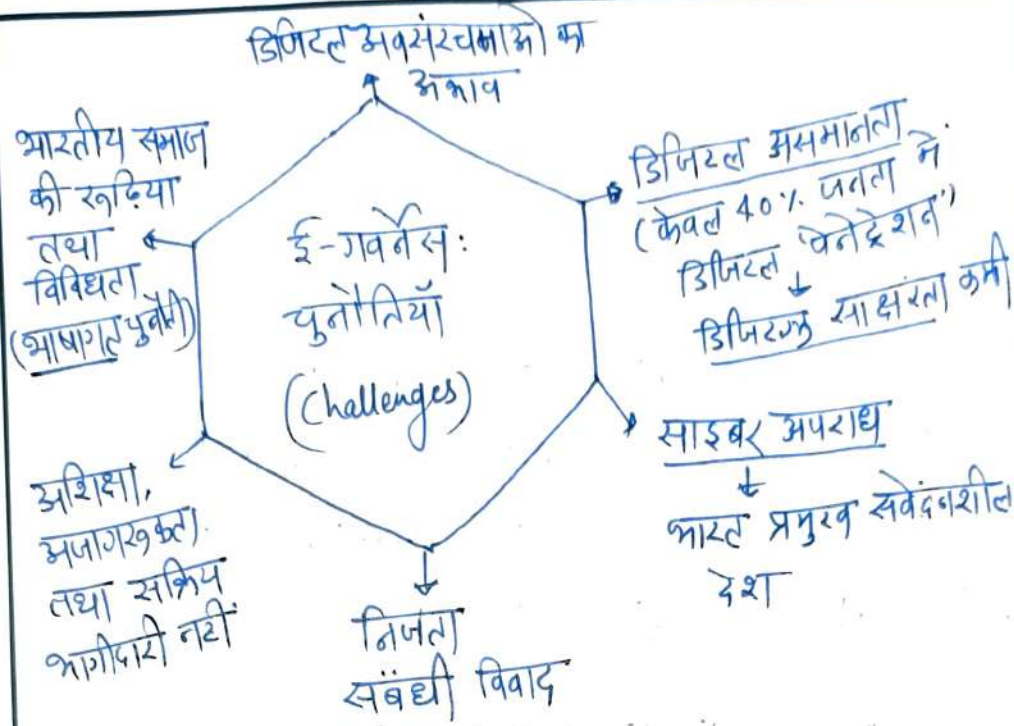 डिजिटल अवसंरचनाओं का
अभाव
भारतीय समाज
की रूढ़िया
तथा
विविधता
(भाषागत चुनौती)
ई-गवर्नेंस:
चुनौतियाँ
(Challenges)
डिजिटल असमानता
(केवल 40% जनता में
डिजिटल 'पेनेट्रेशन')
डिजिटल साक्षरता कमी
साइबर अपराध
भारत प्रमुख संवेदनशील
देश
निजता
संबंधी विवाद
अशिक्षा,
अजागरूकता
तथा सक्रिय
भागीदारी नहीं